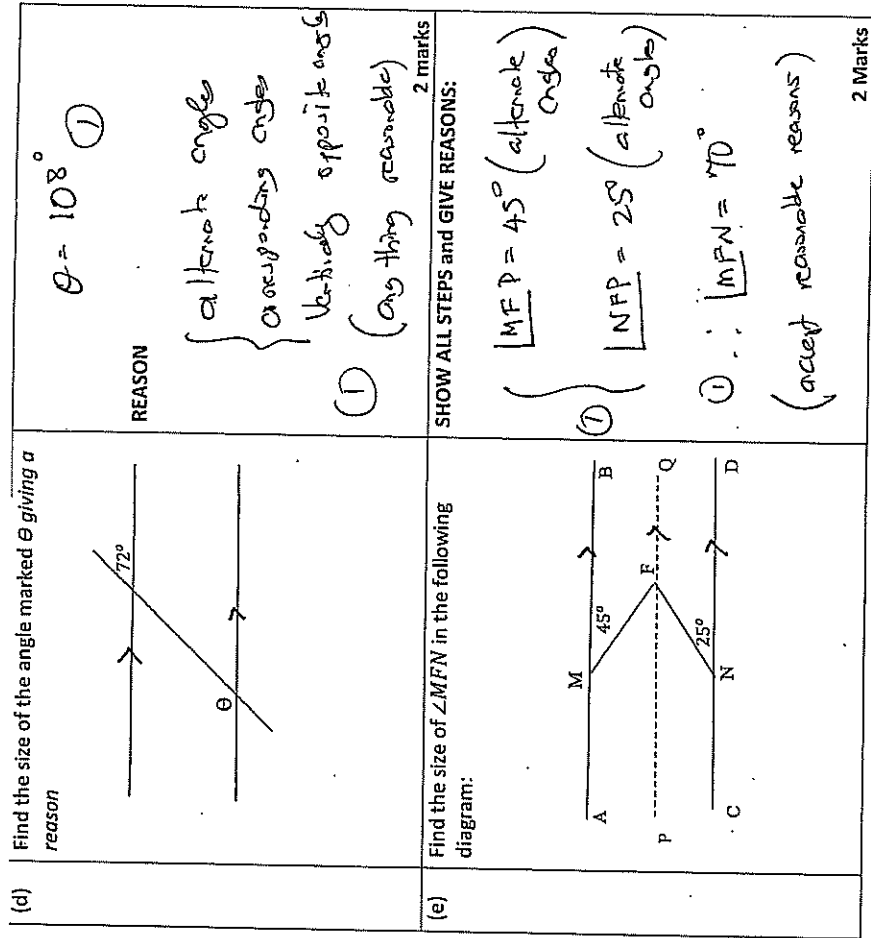 (d)
Find the size of the angle marked θ giving a
reason
72°
θ
θ = 108° ①
REASON
alternate angles
corresponding angles
Vertically opposite angles
① (any thing reasonable)
2 marks
(e)
Find the size of ∠MFN in the following
diagram:
A M B
45°
P F Q
25°
C N D
SHOW ALL STEPS and GIVE REASONS:
∠MFP = 45° (alternate
angles)
∠NFP = 25° (alternate
angles)
①
① ∴ ∠MFN = 70°
(accept reasonable reasons)
2 Marks